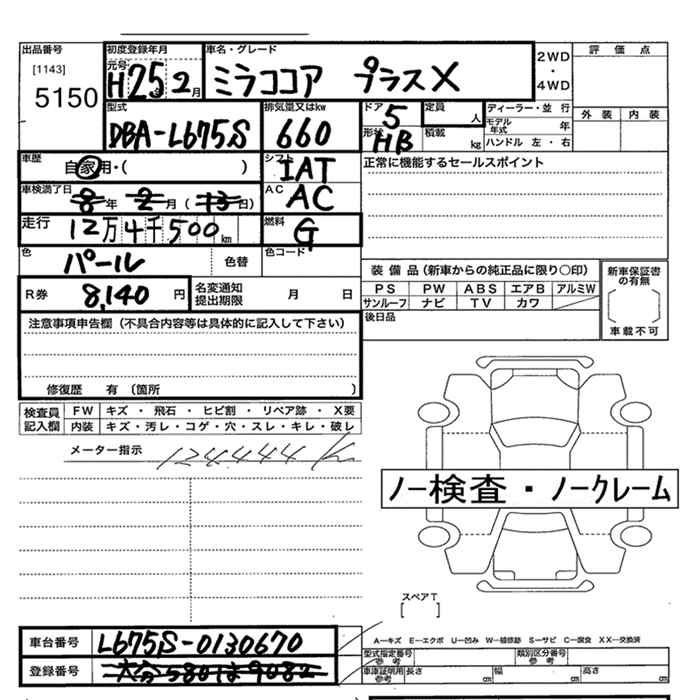 出品番号
[1143]
5150
初度登録年月
元号
H25 年 2 月
車名・グレード
ミラココア プラスX
2WD
・
4WD
評価点
外装 内装
型式
DBA-L675S
排気量又はkw
660
ドア
5
形状
HB
定員
人
積載
kg
ディーラー・並行
モデル年式 年
ハンドル 左・右
車歴
自家用・( )
シフト
IAT
正常に機能するセールスポイント
車検満了日
8年 2月 (13日)
AC
AC
走行
12万4千500km
燃料
G
色
パール
色替
色コード
R券
8,140 円
名変通知
提出期限
月 日
装備品(新車からの純正品に限り○印)
PS PW ABS エアB アルミW
サンルーフ ナビ TV カワ
新車保証書
の有無
車載不可
後日品
注意事項申告欄(不具合内容等は具体的に記入して下さい)
修復歴 有(箇所 )
検査員
記入欄
FW キズ・飛石・ヒビ割・リペア跡・X要
内装 キズ・汚レ・コゲ・穴・スレ・キレ・破レ
メーター指示
124444 K
ノー検査・ノークレーム
スペアT
[ ]
車台番号
L675S-0130670
登録番号
大分580は9082
A―キズ E―エクボ U―凹み W―補修跡 S―サビ C―腐食 XX―交換済
型式指定番号
参考
類別区分番号
参考
車庫証明用
参考
長さ cm 幅 cm 高さ cm